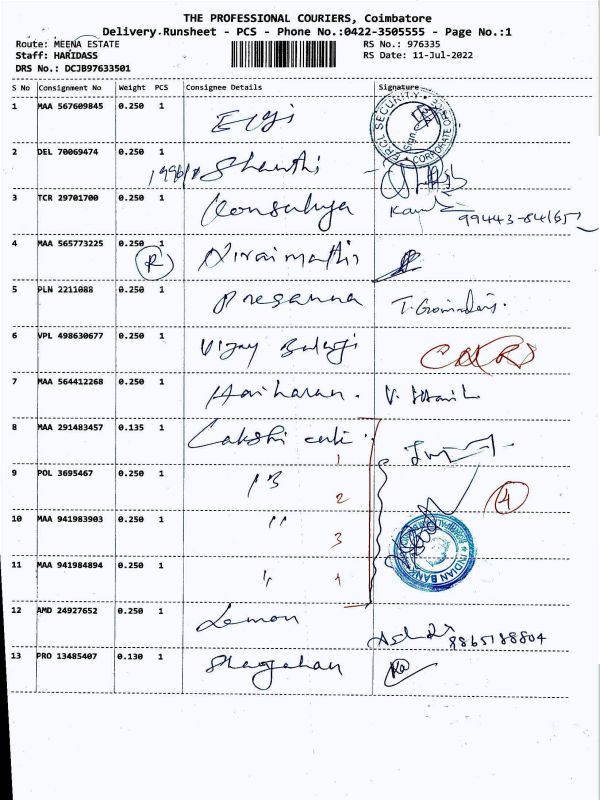 THE PROFESSIONAL COURIERS, Coimbatore
Delivery Runsheet - PCS - Phone No.:0422-3505555 - Page No.:1
Route: MEENA ESTATE RS No.: 976335
Staff: HARIDASS RS Date: 11-Jul-2022
DRS No.: DCJB97633501
S No Consignment No Weight PCS Consignee Details Signature
1 MAA 567609845 0.250 1 Elgi
SECURITY CORPORATE
2 DEL 70069474 0.250 1 Shanthi
3 TCR 29701700 0.250 1
4 MAA 565773225 0.250 1 Niraimathi
R
5 PLN 2211088 0.250 1 Presanna T. Govindaraj.
6 VPL 498630677 0.250 1 Vijay Balaji
7 MAA 564412268 0.250 1 Hariharan. V.
8 MAA 291483457 0.135 1 Lakshi
1
9 POL 3695467 0.250 1
2 4
10 MAA 941983903 0.250 1 "
3
11 MAA 941984894 0.250 1 "
4
INDIAN BANK
12 AMD 24927652 0.250 1 Lemon
8865188804
13 PRO 13485407 0.130 1